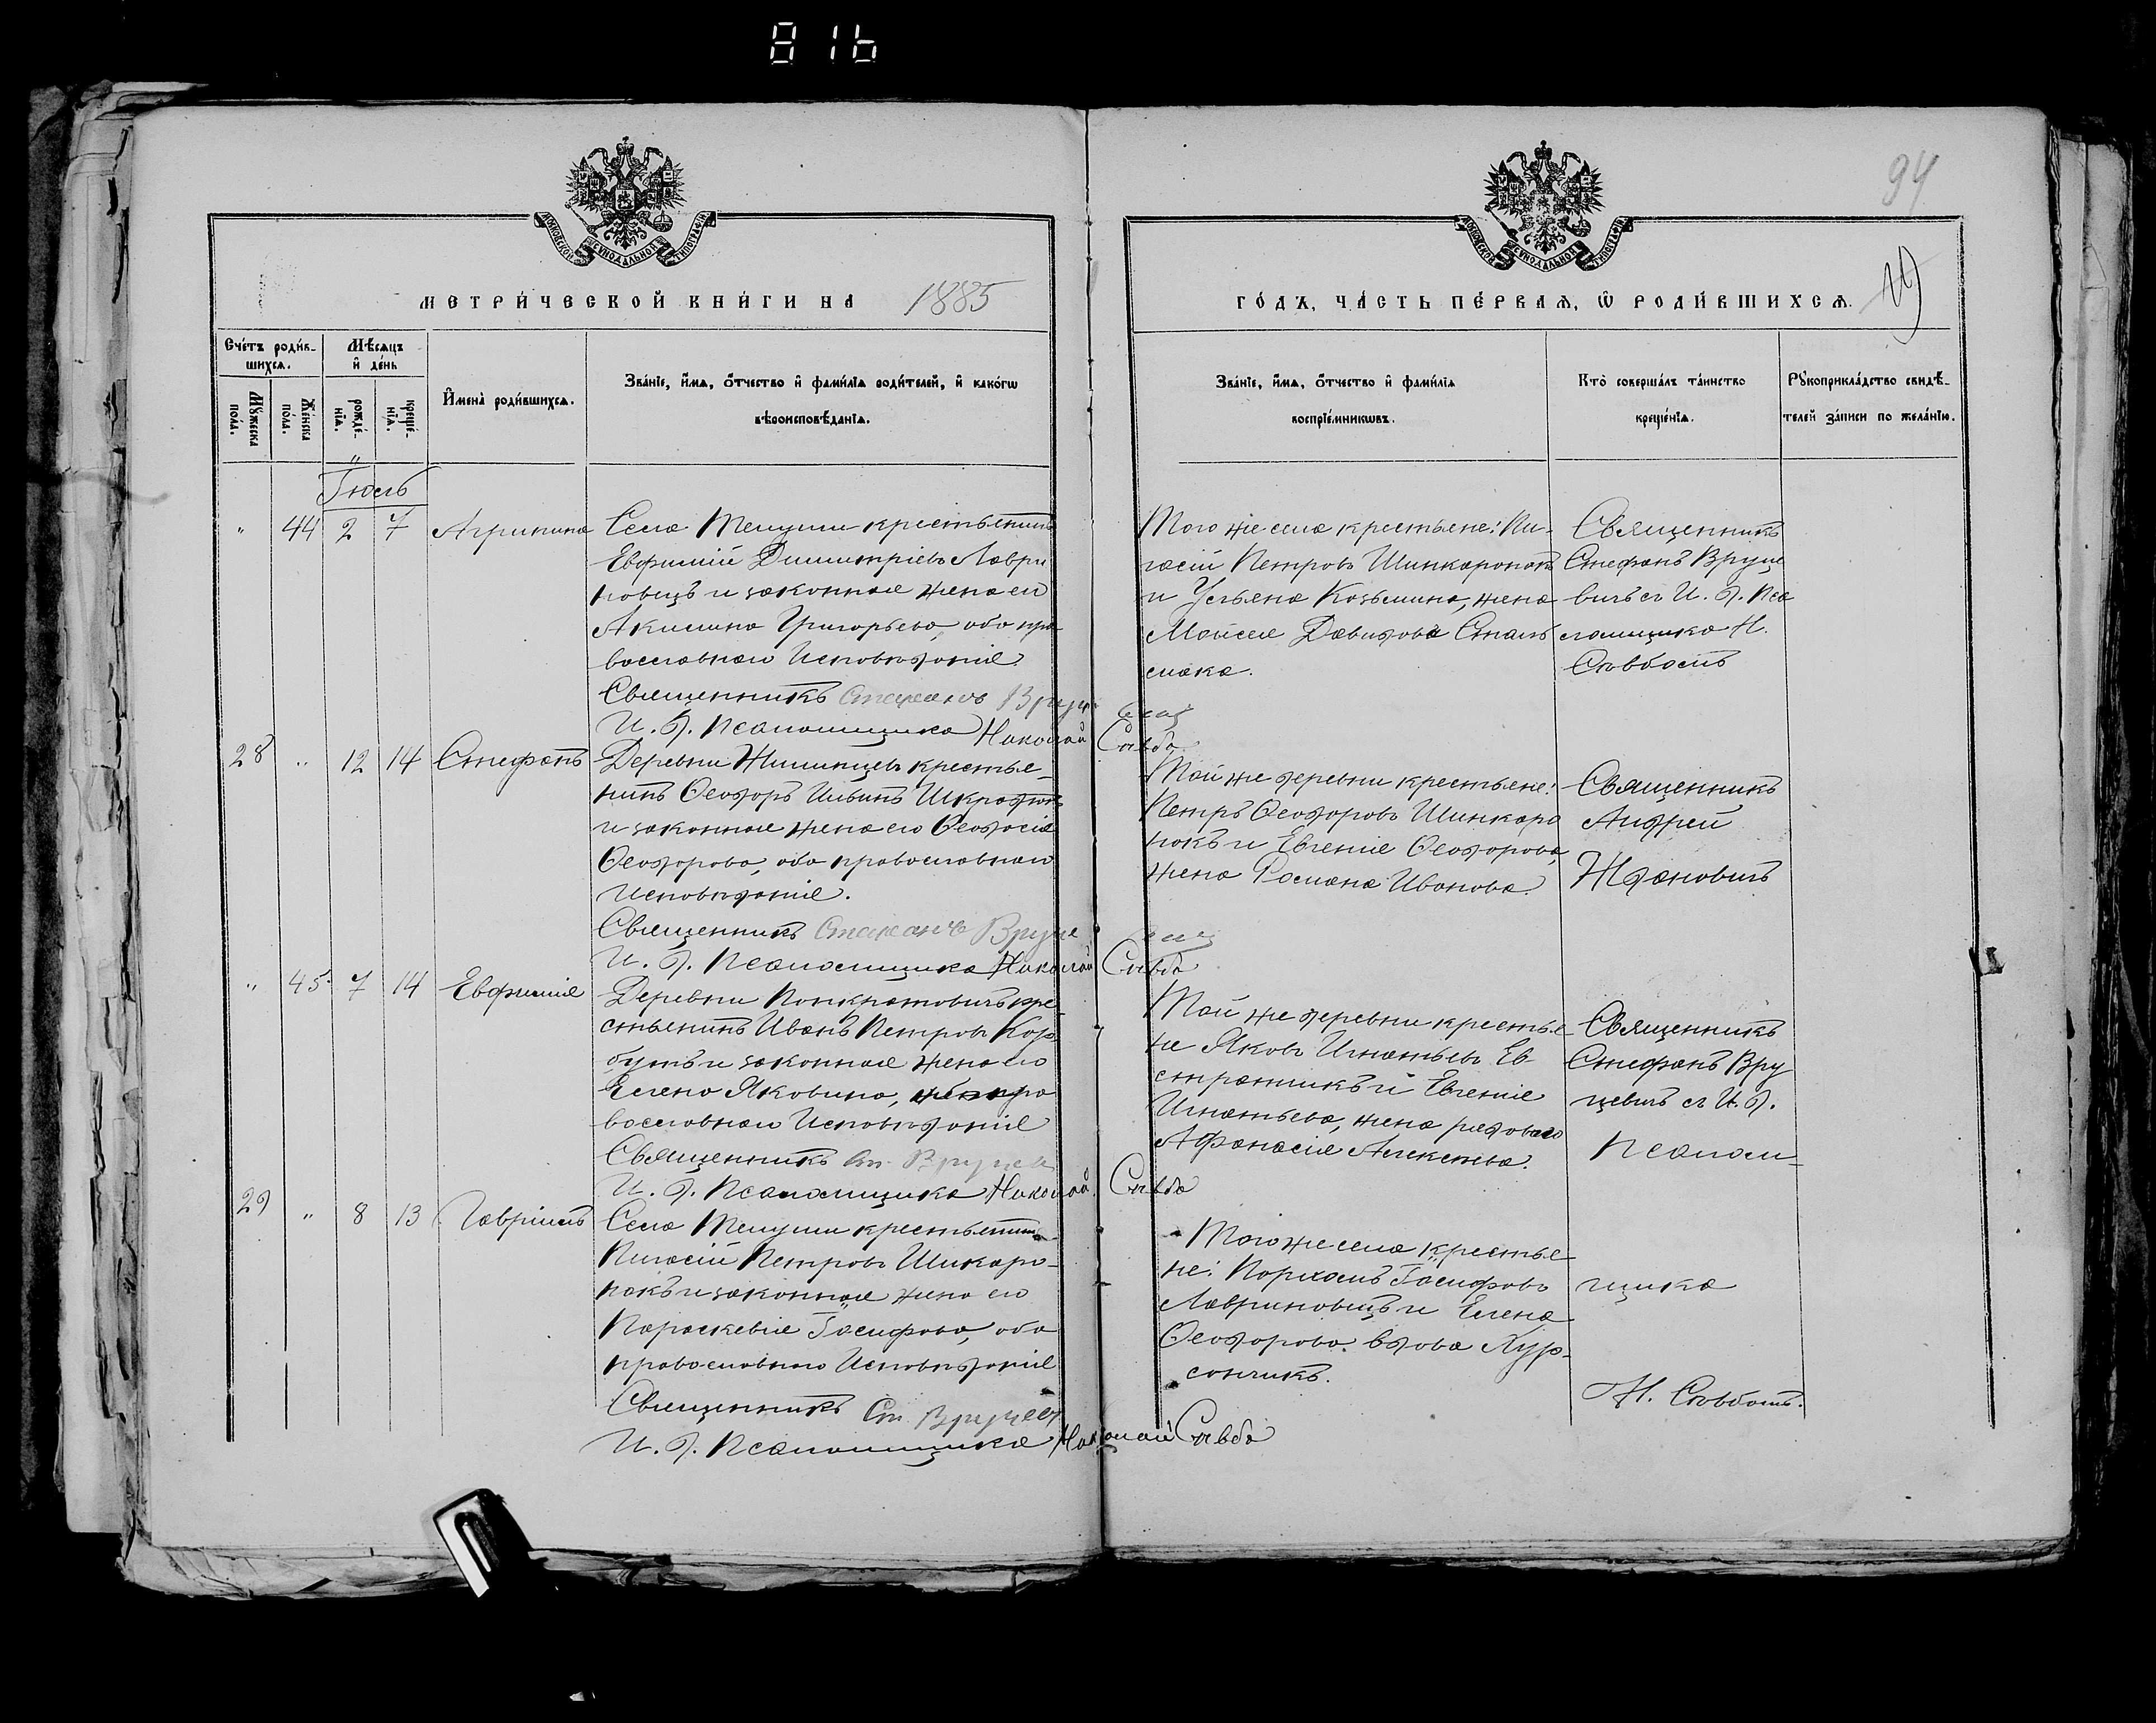 81b
94
МОСКОВСКОЙ СѴНОДАЛЬНОЙ ТИПОГРАФІИ
МОСКОВСКОЙ СѴНОДАЛЬНОЙ ТИПОГРАФІИ
МЕТРИ́ЧЕСКОЙ КНИ́ГИ НА 1885
ГО́ДЪ, ЧА́СТЬ ПЕ́РВАѦ, Ѿ РОДИ́ВШИХСѦ.
Сче́тъ роди́в-
шихсѧ.
Мѣ́сѧцъ
и҆ де́нь
Мꙋ́жеска
по́ла.
Же́нска
по́ла.
рожде́-
нїѧ.
креще́-
нїѧ.
И҆мена̀ роди́вшихсѧ.
Зва́нїе, и҆́мѧ, ѻ҆́тчество и҆ фами́лїѧ роди́телей, и҆ како́гѡ
вѣроисповѣ́данїѧ.
Зва́нїе, и҆́мѧ, ѻ҆́тчество и҆ фами́лїѧ
воспрїе́мникѡвъ.
Кто̀ соверша́лъ та́инство
креще́нїѧ.
Рꙋкоприкла́дство свидѣ́-
телей за́писи по жела́нїю.
Іюль
" 44 2 7 Агрипина
Села Телуши крестьянинъ
Евфимій Димитріевъ Лаври
новецъ и законная жена его
Акилина Григорьева, оба пра
вославнаго Исповѣданія
Священникъ Стефанъ Вруце
вичъ
И. д. Псаломщика Николай Савба
Того же села крестьяне: Пи-
гасій Петровъ Шинкаронокъ
и Ульяна Козьмина, жена
Моисея Давидова Сталь
мака.
Священникъ
Стефанъ Вруце
вичъ съ И. д. Пса
ломщика Н.
28 " 12 14 Стефанъ
Деревни Жилинцевъ крестья-
нинъ Ѳеодоръ Ильинъ
и законная жена его Ѳеодосія
Ѳеодорова, оба православнаго
Исповѣданія.
Священникъ Стефанъ Вруце
вичъ
И. д. Псаломщика Николай Савба
Той же деревни крестьяне:
Петръ Ѳеодоровъ Шинкаро
нокъ и Евгенія Ѳеодорова,
жена Романа Иванова.
Священникъ
Андрей
Ждановичъ
" 45 7 14 Евфимія
Деревни Понкратовичъ кре
стьянинъ Иванъ Петровъ Кор
бутъ и законная жена его
Елена Яковина, пра
вославнаго Исповѣданія
Священникъ Ст. Вруцев
И. д. Псаломщика Николай Савба
Той же деревни крестья
не Яковъ Игнатьевъ Ев
стратчикъ и Евгенія
Игнатьева, жена рядоваго
Афанасія Алексѣева.
Священникъ
Стефанъ Вру
цевичъ съ И. д.
Псалом-
29 " 8 13 Гавріилъ
Села Телуши крестьянинъ
Пигасій Петровъ Шинкаро-
нокъ и законная жена его
Параскевія Іосифова, оба
православнаго Исповѣданія
Священникъ Ст. Вруцев
И. д. Псаломщика Николай Савба
Того же села крестья-
не: Порхомъ Іосифовъ
Лавриновецъ и Елена
Ѳеодорова вдова Хур-
сончикъ.
щика